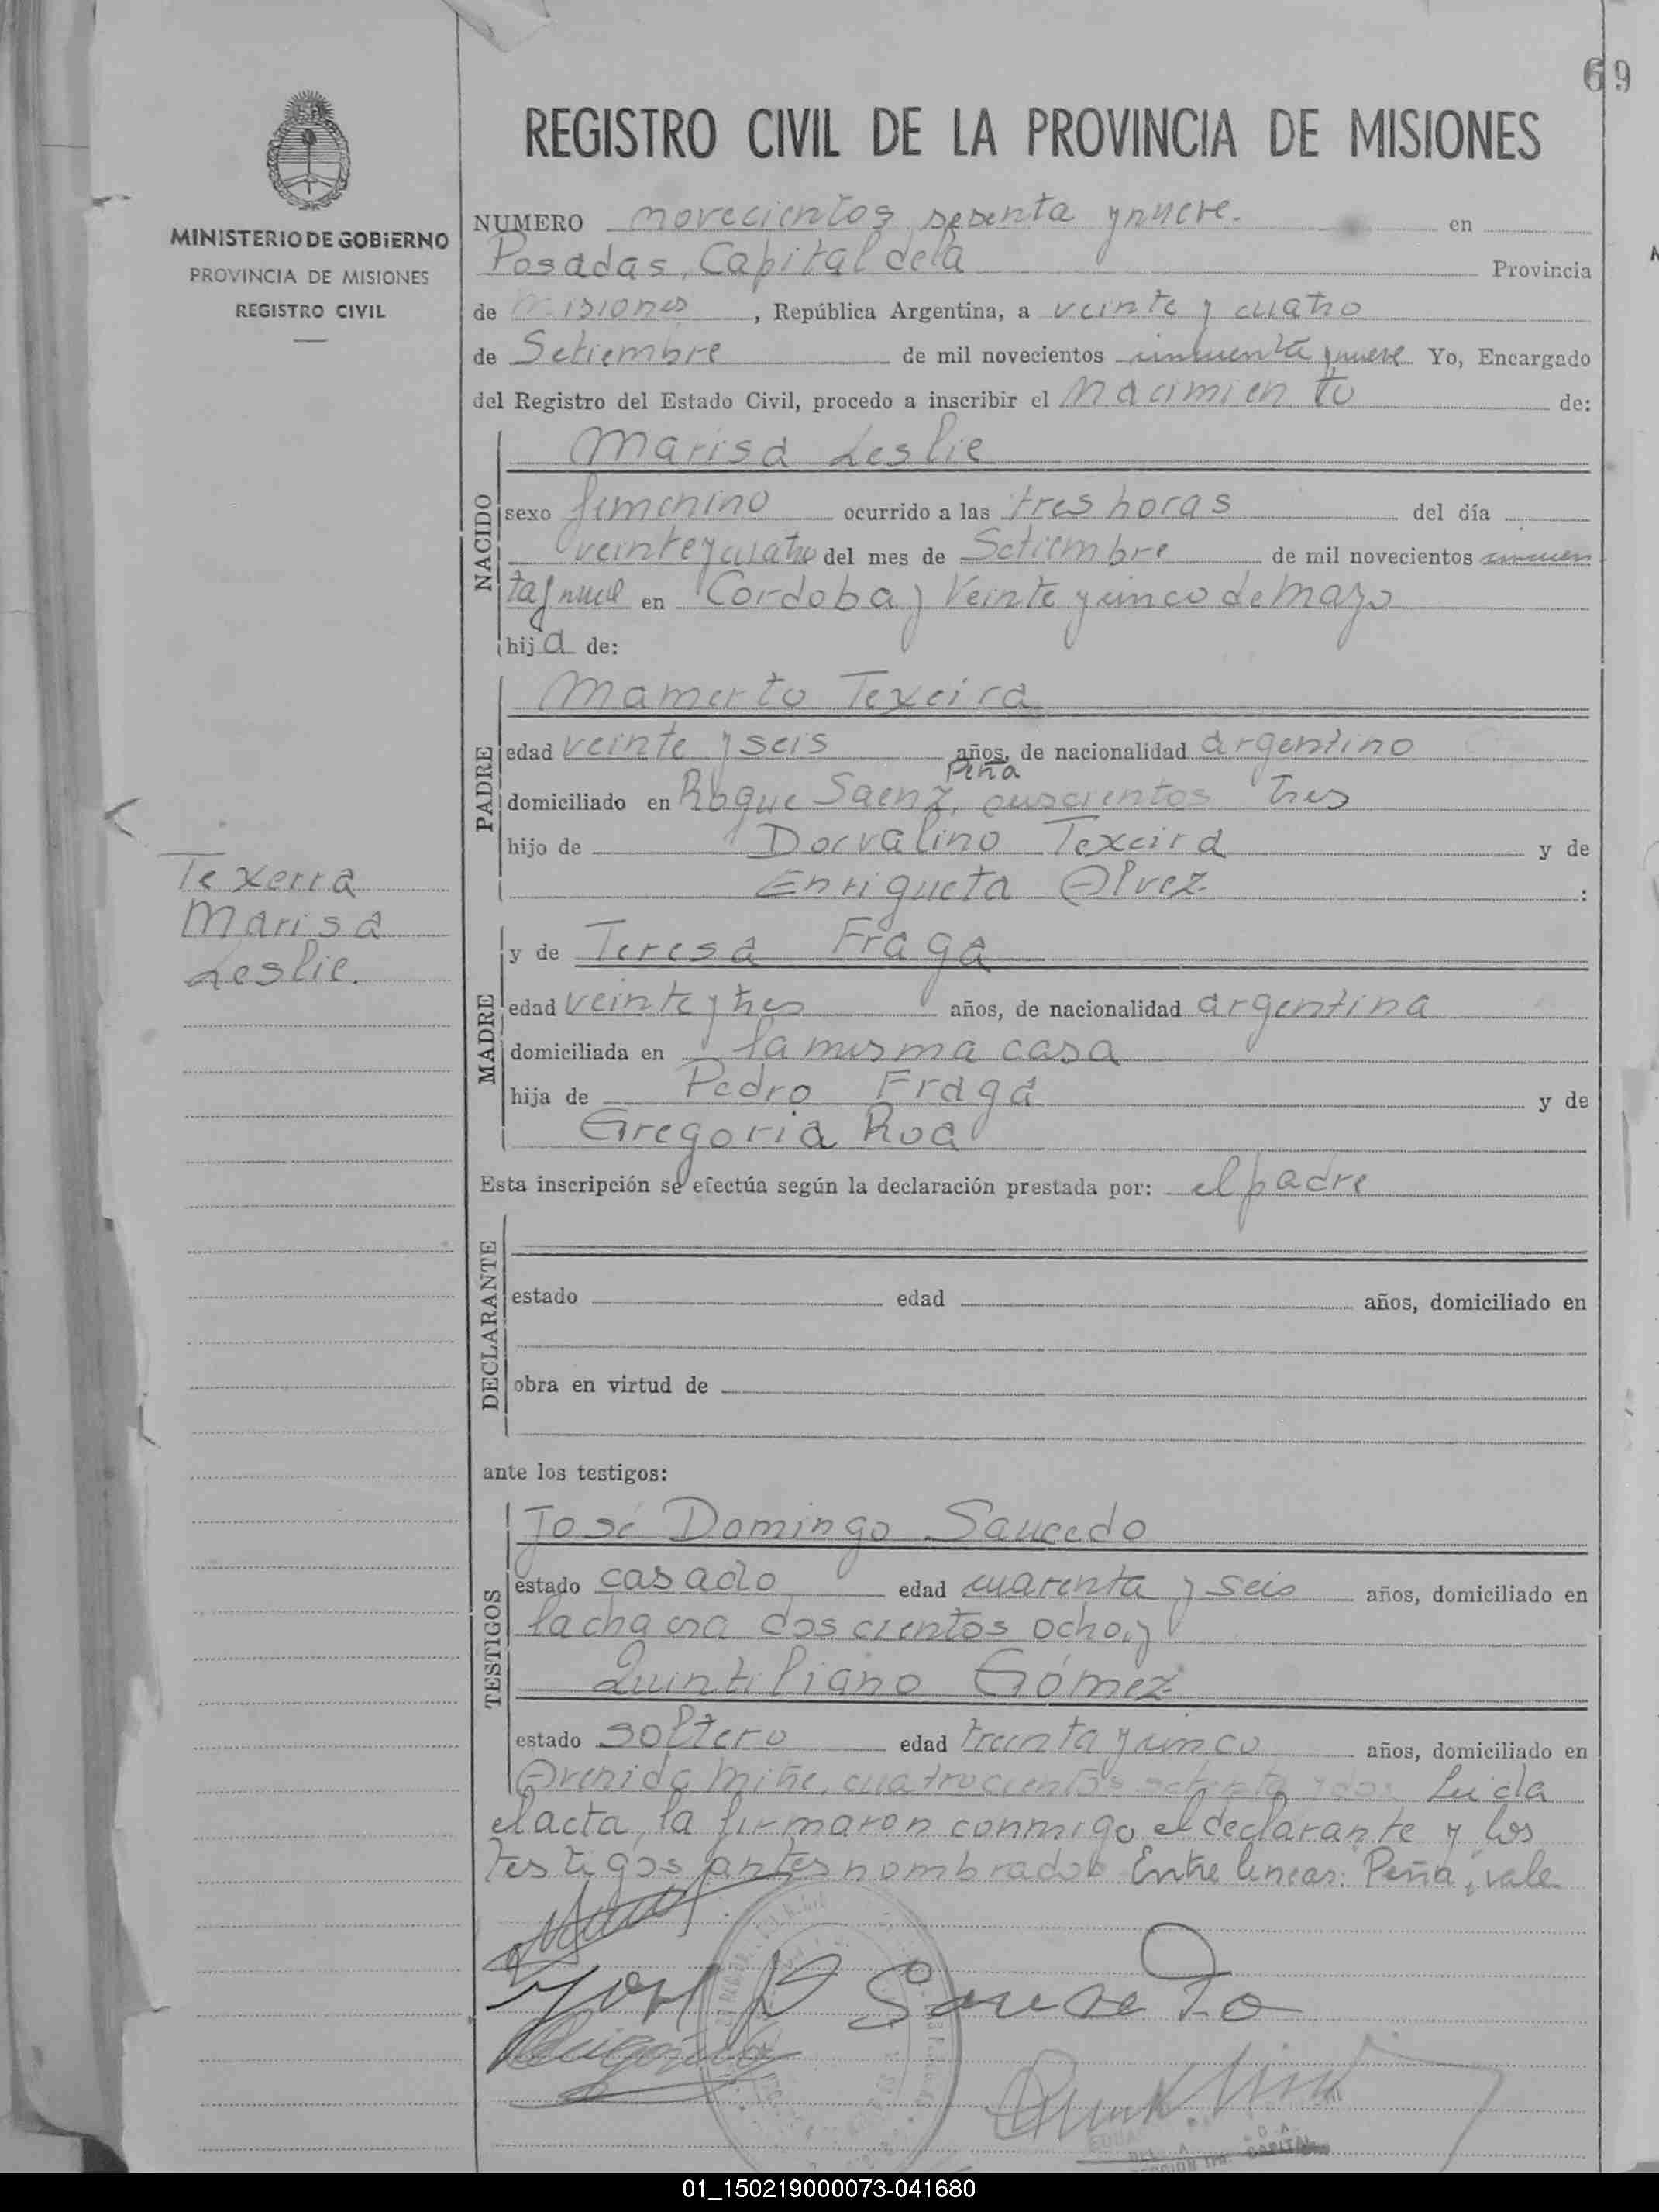 69
REGISTRO CIVIL DE LA PROVINCIA DE MISIONES
MINISTERIO DE GOBIERNO
PROVINCIA DE MISIONES
REGISTRO CIVIL
NUMERO novecientos sesenta y nueve. en
Posadas, Capital de la Provincia
de Misiones, República Argentina, a veinte y cuatro
de Setiembre de mil novecientos cincuenta y nueve Yo, Encargado
del Registro del Estado Civil, procedo a inscribir el Nacimiento de:
NACIDO
Marisa Leslie
sexo femenino ocurrido a las tres horas del día
veinte y cuatro del mes de Setiembre de mil novecientos cincuen
ta y nueve en Cordoba y Veinte y cinco de Mayo
hija de:
PADRE
Mamerto Texeira
edad veinte y seis años, de nacionalidad argentino
Peña
domiciliado en Roque Saenz, doscientos tres
hijo de Dorvalino Texeira y de
Enriqueta Alvez :
Texeira
Marisa
Leslie.
MADRE
y de Teresa Fraga
edad veinte y tres años, de nacionalidad argentina
domiciliada en la misma casa
hija de Pedro Fraga y de
Gregoria Roa
Esta inscripción se efectúa según la declaración prestada por: el padre
DECLARANTE
estado edad años, domiciliado en
obra en virtud de
ante los testigos:
TESTIGOS
José Domingo Saucedo
estado casado edad cuarenta y seis años, domiciliado en
la chacra doscientos ocho, y
Quintiliano Gómez
estado soltero edad treinta y cinco años, domiciliado en
Avenida Mitre, cuatrocientos setenta y dos Leida
el acta, la firmaron conmigo el declarante y los
testigos antes nombrados. Entre lineas: "Peña", vale
José D Saucedo
CAPITAL
01_150219000073-041680